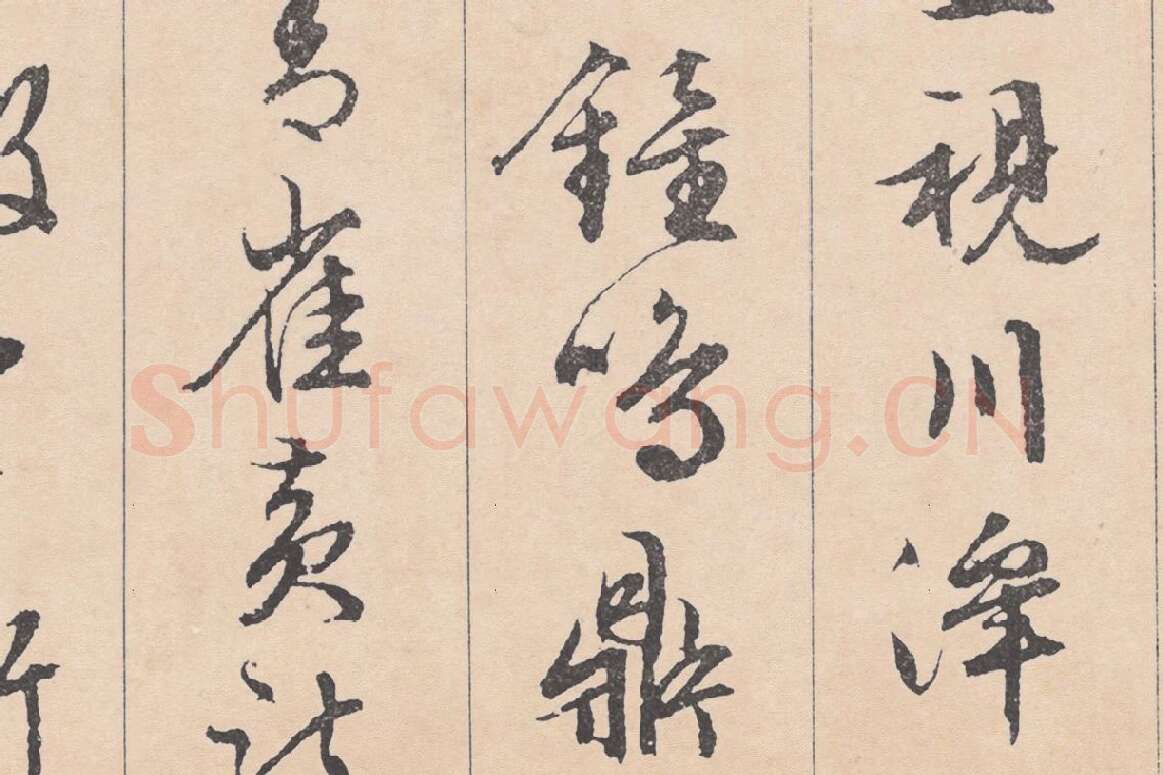 視川澤
鐘鳴鼎
青雀黄
Shufawang.CN